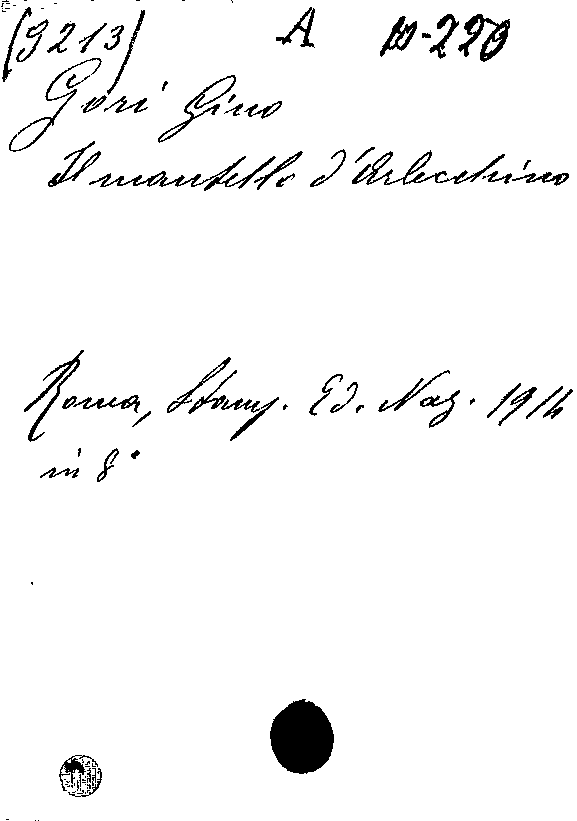 (9213) A 10-220
Gori Gino
Il mantello d'Arlecchino
Roma, Stamp. Ed. Naz. 1914
in 8°